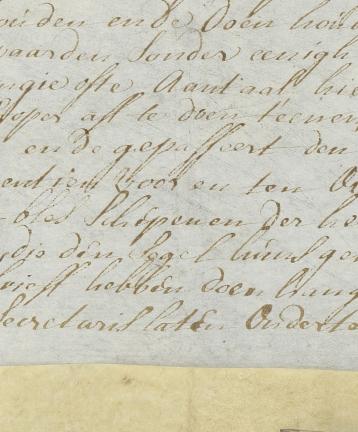 ouden ende Doen hou
waarden Sonder eenigh
ngie ofte Aantaal hie
oper aff te doen t'eenen
ende gepasseert den
entien Voor en ten O
oles Schepenen der he
die den Segel huns ge
rieff hebben doen hang
Secretaris laten Onderte